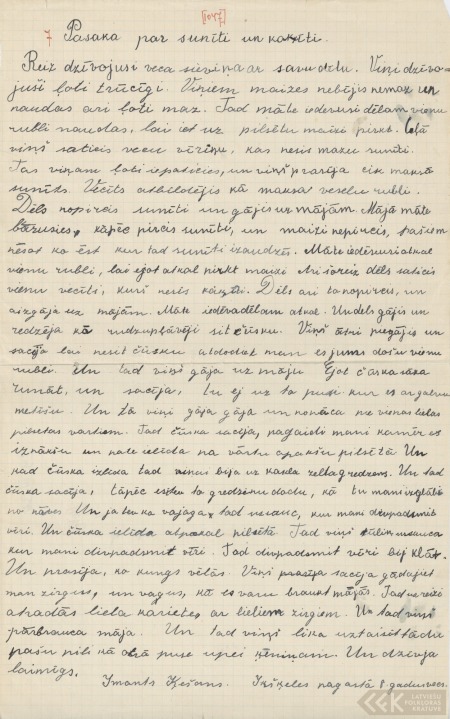 [1047]
7 Pasaka par sunīti un kaķīti.
Reiz dzīvojusi veca sieviņa ar savu dēlu. Viņi dzīvo-
juši ļoti trūcīgi. Viņiem maizes nebijis nemaz un
naudas arī ļoti maz. Tad māte iedevusi dēlam vienu
rubli naudas, lai iet uz pilsētu maizi pirkt. Ceļā
viņš saticis vecu vīriņu, kas nesis mazu sunīti.
Tas viņam ļoti iepaticies, un viņš prasīja cik maksā
sunīts. Vecīts atbildējis kā maksā veselu rubli.
Dēls nopircis sunīti un gājis uz mājām. Mājā māte
bārusies, kāpēc pircis sunīti, un maizi nepircis, pašiem
nēsot ko ēst kur tad sunīti izaudzēs. Māte iedevusi atkal
vienu rubli, lai ejot atkal pirkt maizi. Arī šoreiz dēls saticis
vienu vecīti, kurš nesis kaķīti. Dēls arī to nopircis, un
aizgāja uz mājām. Māte iedeva dēlam atkal. Un dēls gājis un
redzēja kā rudzupļāvēji sit čūsku. Viņš ātri piegājis un
sacīja lai nesit čūsku atdodat man es jums došu vienu
rubli. Un tad viņš gāja uz māju. Ejot čūska sāka
runāt, un sacīja, tu ej uz to pusi kur es ar galvu
metīšu. Un tā viņi gāja gāja un nonāca pie vienas lielas
pilsētas vārtiem. Tad čūska sacīja, pagaidi mani kamēr es
iznākšu un pate ielīda pa vārtu apakšu pilsētā. Un
kad čūska izlīda tad viņas bija uz kakla zelta gredzens. Un tad
čūska sacīja, tāpēc es to gredzenu dodu, kā tu mani izglābi
no nāves. Un ja tev kā vajaga, tad nosauc, kur mani divpadsmit
vīri. Un čūska ielīda atpakaļ pilsētā. Tad viņš nosauca
kur mani divpadsmit vīri. Tad divpadsmit vīri bij klāt.
Un prasīja, ko kungs vēlās. Viņš sacīja gādājiet
man zirgus, un vagus, kā es varu braukt mājās. Tad uzreiz
atradās liela kariete, ar lieliem zirgiem. Un tad viņš
pārbrauca mājā. Un tad viņš lika uztaisīt tādu
pašu pili kā otrā puse upei ķēniņam. Un dzīvoja
laimīgs.
Imants Ķešans. Ikšķeles pagastā 8. gadus vecs.
LATVIEŠU FOLKLORAS KRĀTUVE